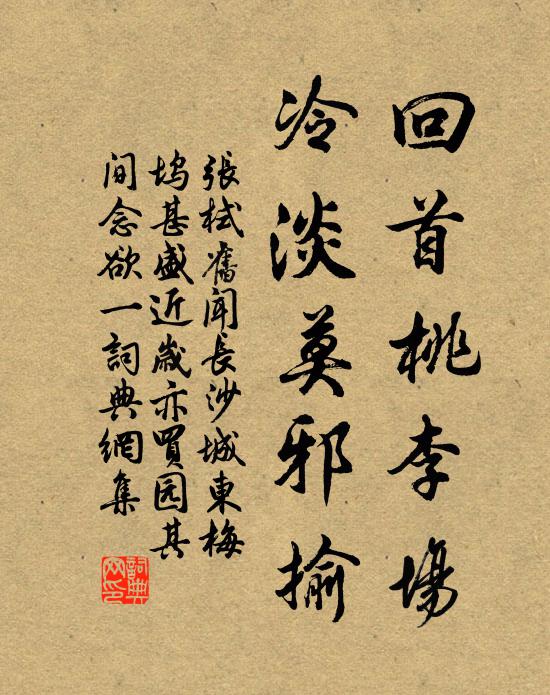 回首桃李場
冷淡莫邪揄
張栻舊聞長沙城東梅
塢甚盛近歲亦買园其
间念欲一詞典網集
詞典网印